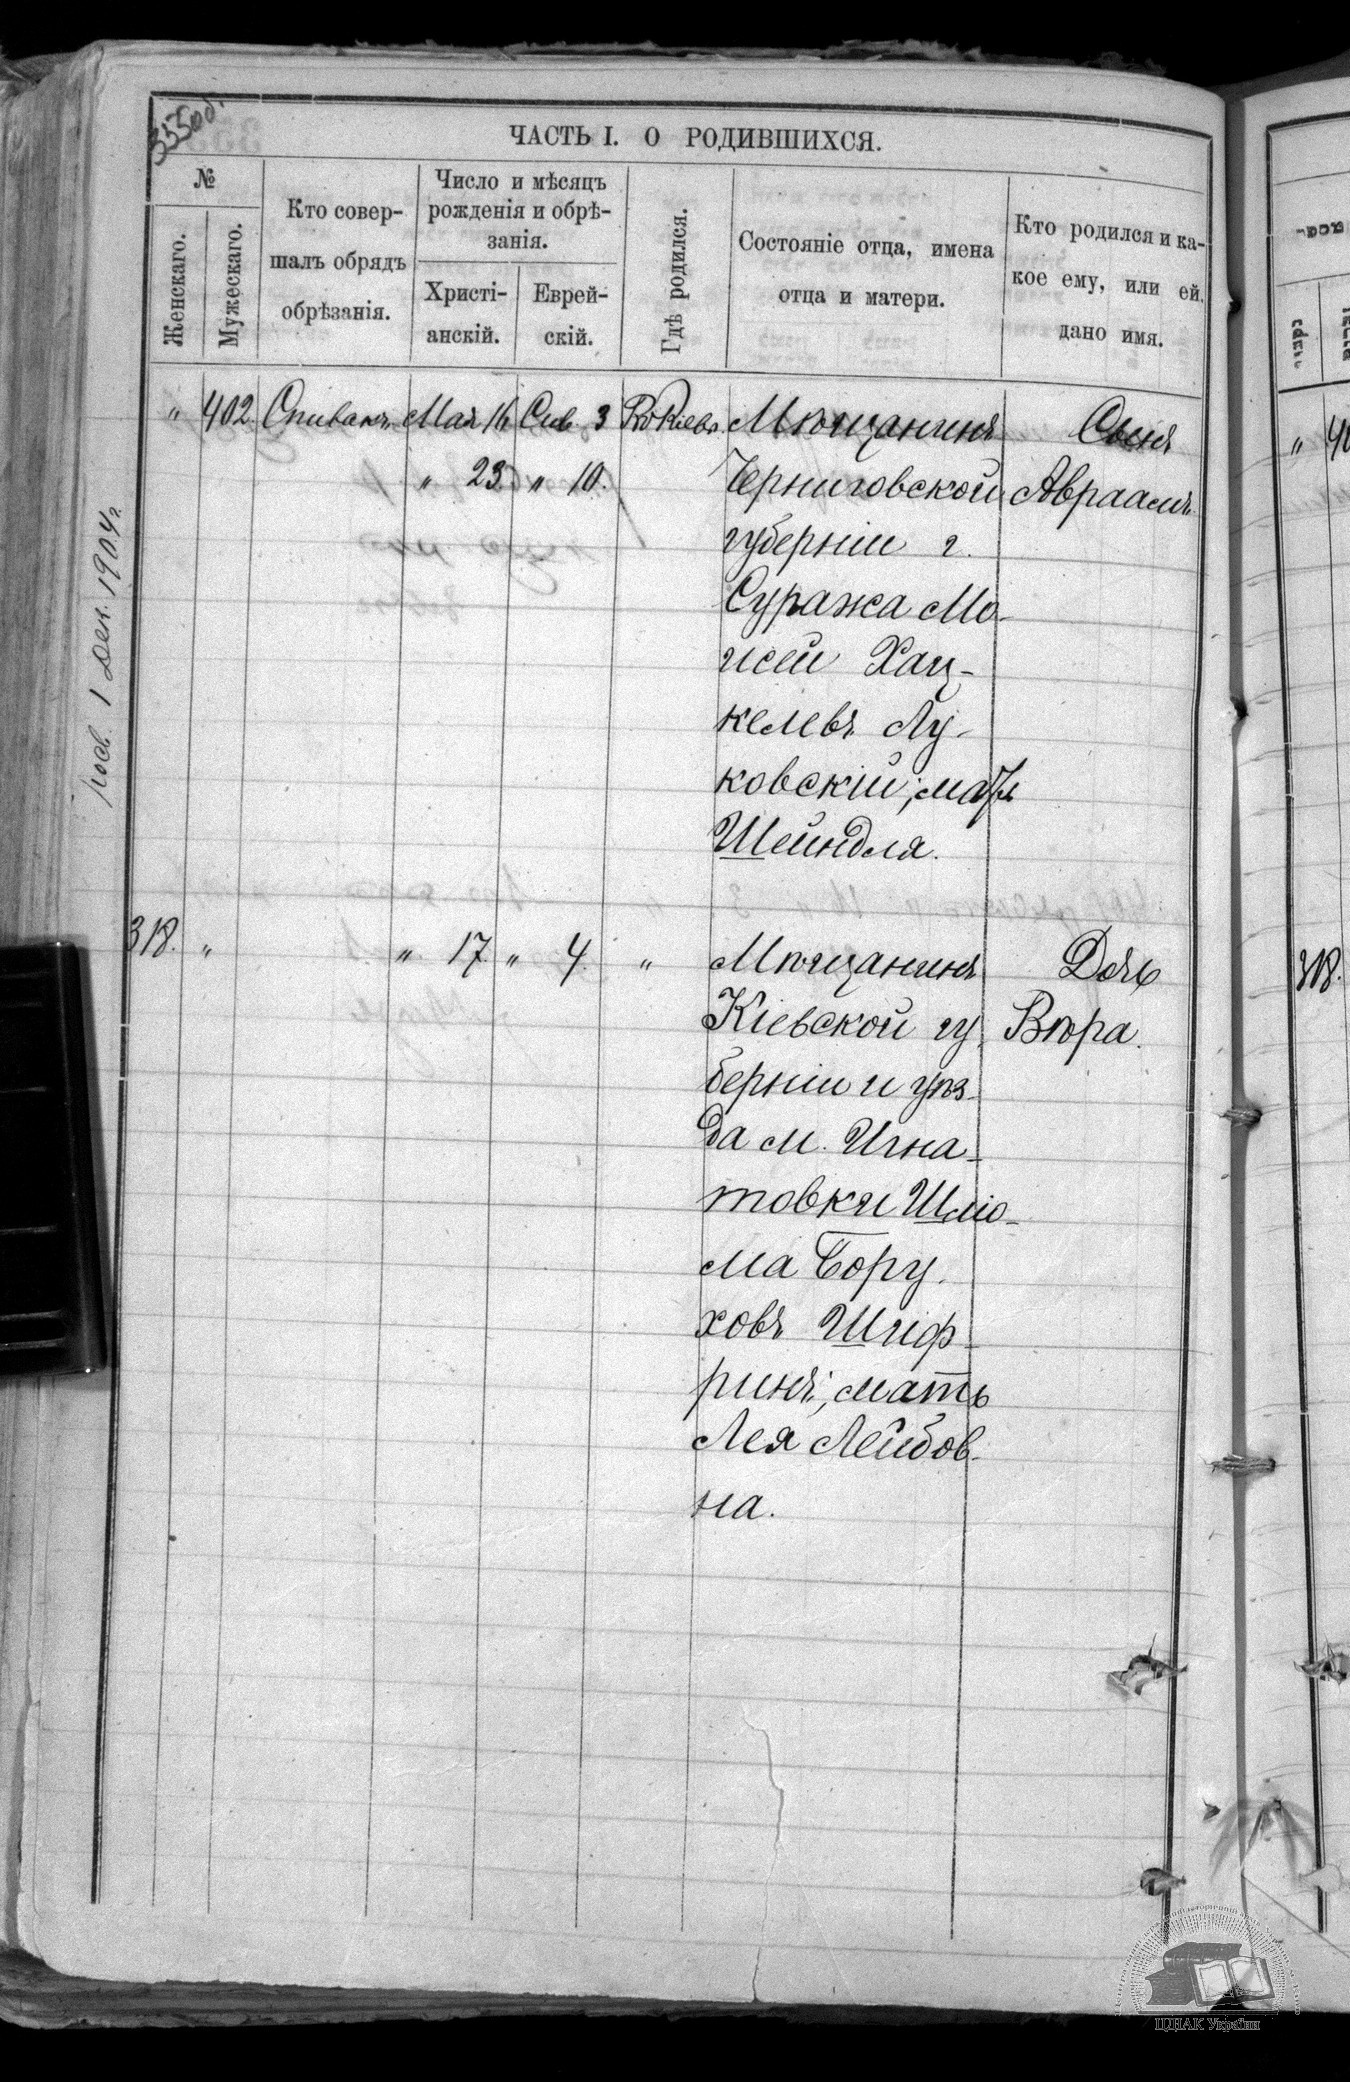 355об.
ЧАСТЬ I. О РОДИВШИХСЯ.
№
Женскаго.
Мужескаго.
Кто совер-
шалъ обрядъ
обрѣзанія.
Число и мѣсяцъ
рожденія и обрѣ-
занія.
Христі-
анскій.
Еврей-
скій.
Гдѣ родился.
Состояніе отца, имена
отца и матери.
Кто родился и ка-
кое ему, или ей,
дано имя.
" 402 Спивакъ Мая 16 Сив. 3 В. Кіевѣ Мѣщанинъ Сынъ
" 23 " 10. Черниговской Авраамъ.
губерніи г.
Суража Мо-
исей Хац-
келевъ Лу-
ковскій, мать
Шейндля.
318. " " 17 " 4. " Мѣщанинъ Дочь
Кіевской гу- Вѣра.
берніи и уѣз-
да м. Игна-
товки Шлио-
ма Бору-
ховъ Шиф-
ринъ, мать
Лея Лейбов-
на.
1 Дек. 1904г.
318.
ЦДІАК України